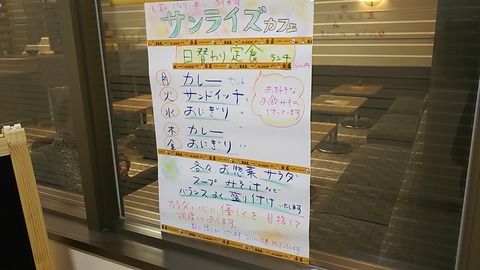 サンライズカフェ
日替わり定食 ランチ
月 カレー セット
火 サンドイッチ 〃
水 おにぎり 〃
木 カレー 〃
金 おにぎり 〃
お好きな
お飲みもの
付いてます
各々 お惣菜 サラダ
スープ みそ汁など
バランスよく 盛り付けいたします
カラダと心に優しくを目指して
調理しております。